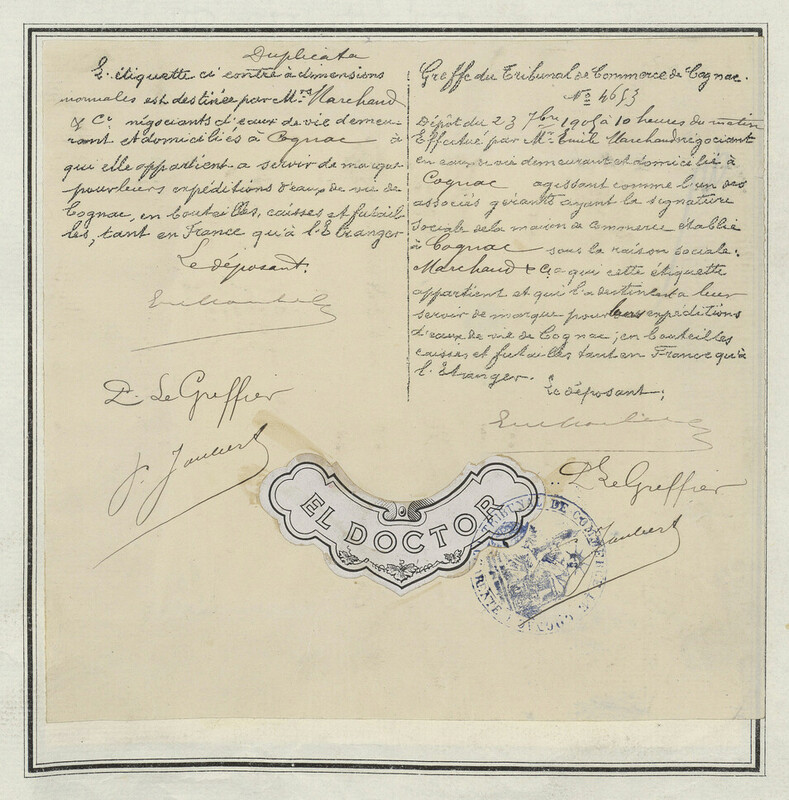 Duplicata
L'étiquette ci contre à dimensions
normales est destinée par Mrs Marchaud
& Cie négociants d'eaux de vie demeu-
rant et domiciliés à Cognac à
qui elle appartient a servir de marque
pour leurs expéditions d'eaux de vie de
Cognac, en bouteilles, caisses et futail-
les, tant en France qu'à l'Etranger
Le déposant.
D. Le Greffier
J. Joubert
Greffe du Tribunal de Commerce de Cognac.
No 4653
Dépôt du 23 7bre 1905 à 10 heures du matin
Effectué par Mr. Emile Marchaud négociant
en eaux de vie demeurant et domicilié à
Cognac agissant comme l'un des
associés gérants ayant la signature
sociale de la maison de Commerce établie
à Cognac sous la raison sociale:
Marchaud & Cie que cette étiquette
appartient et qu'il a destinent a leur
servir de marque pour leurs expéditions
d'eaux de vie de Cognac; en bouteilles
caisses et futailles tant en France qu'à
l'Étranger.
Le déposant;
D. Le Greffier
Joubert
EL DOCTOR
TRIBUNAL DE COMMERCE
COGNAC